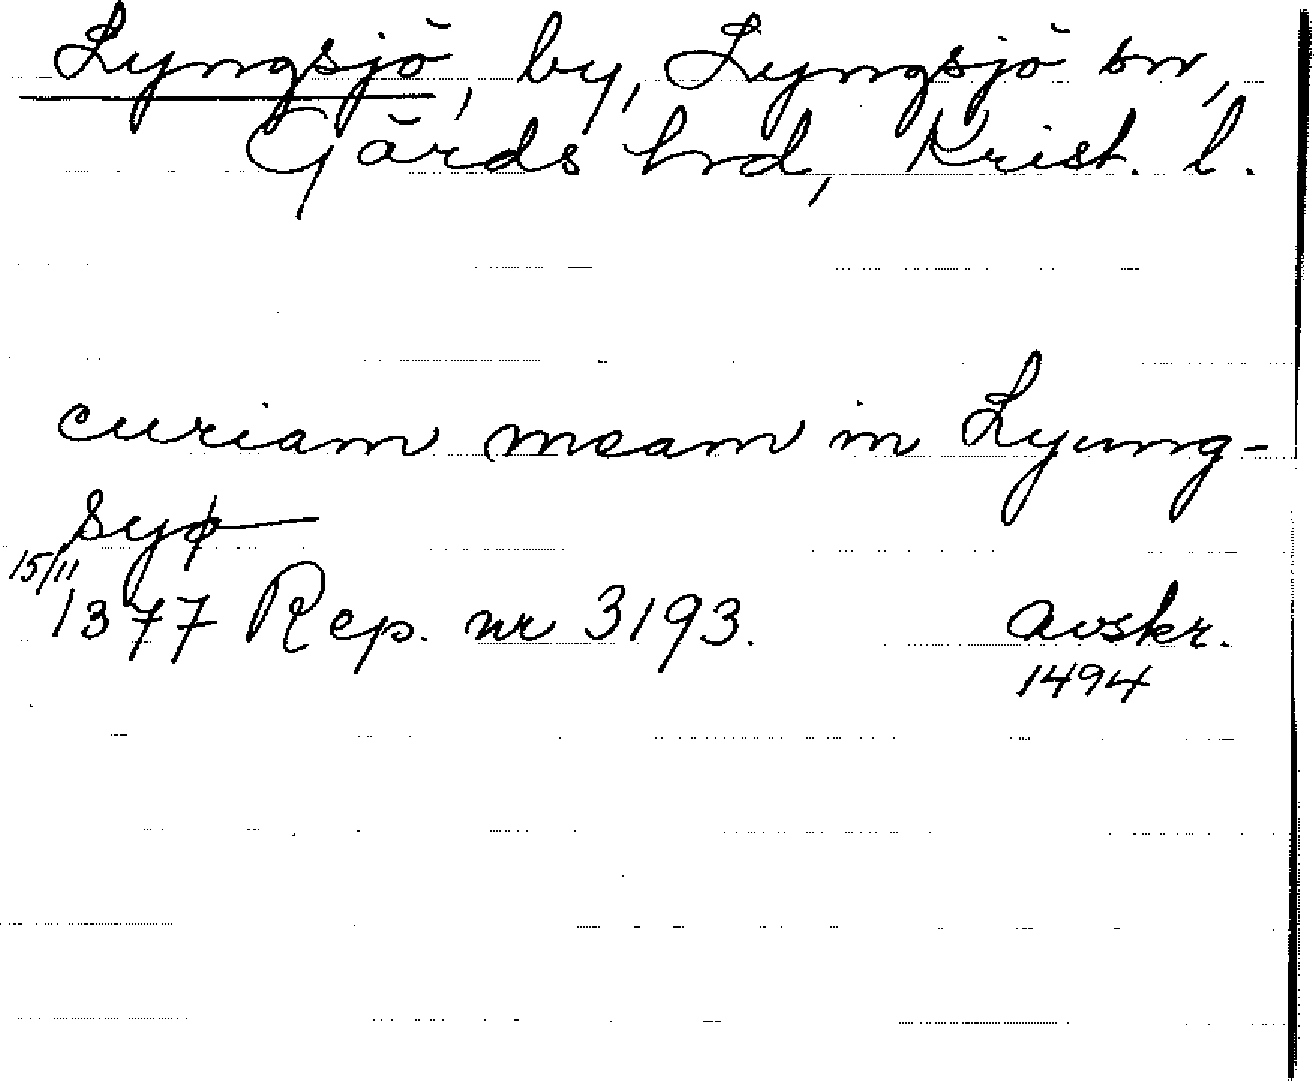 Lyngsjö, by, Lyngsjö sn,
Gärds hrd, Krist. l.
curiam meam in Lyung-
syø
15/11
1377 Rep. nr 3193. avskr.
1494